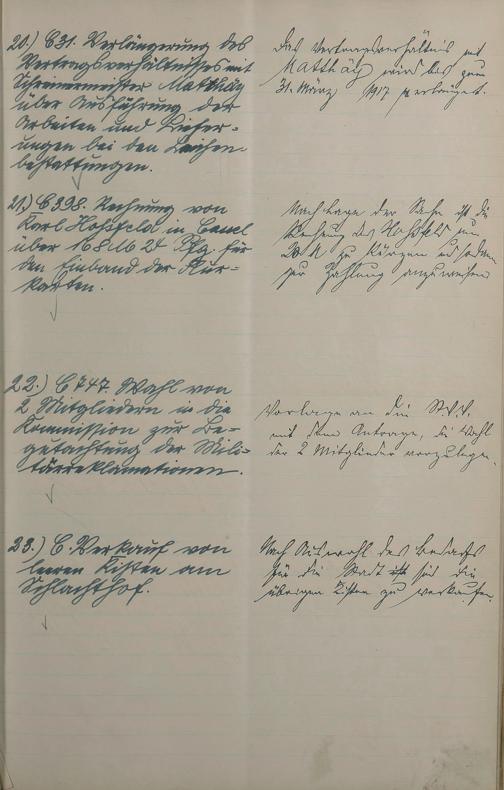 20.) C31. Verlängerung des
Vertragsverhältnisses mit
Schreinermeister Matthäy
über Ausführung der
Arbeiten und Liefer-
ungen bei den Leichen-
bestattungen.
Das Vertragsverhältnis mit
Matthäy wird bis zum
31. März 1917 verlängert.
21.) C398. Rechnung von
Karl Hohsfeld in
über 168 M 24 Pfg. für
den Einband der Kur-
karten.
Nach Lage der Sache ist die
Rechnung des Hohsfeld um
M zu kürzen und sodann
zur Zahlung anzuweisen
22.) C747. Wahl von
2 Mitgliedern in die
Kommission zur Be-
gutachtung der Mili-
tärreklamationen.
Vorlage an die St.V.V.
mit dem Antrage, die Wahl
der 2 Mitglieder vorzulegen.
23.) C. Verkauf von
leeren Kisten am
Schlachthof.
Nach Auswahl des Bedarfs
für die Stadt sind die
übrigen Kisten zu verkaufen.